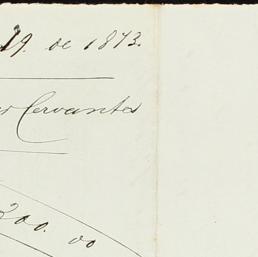 19. de 1873.
Cervantes
200. 00